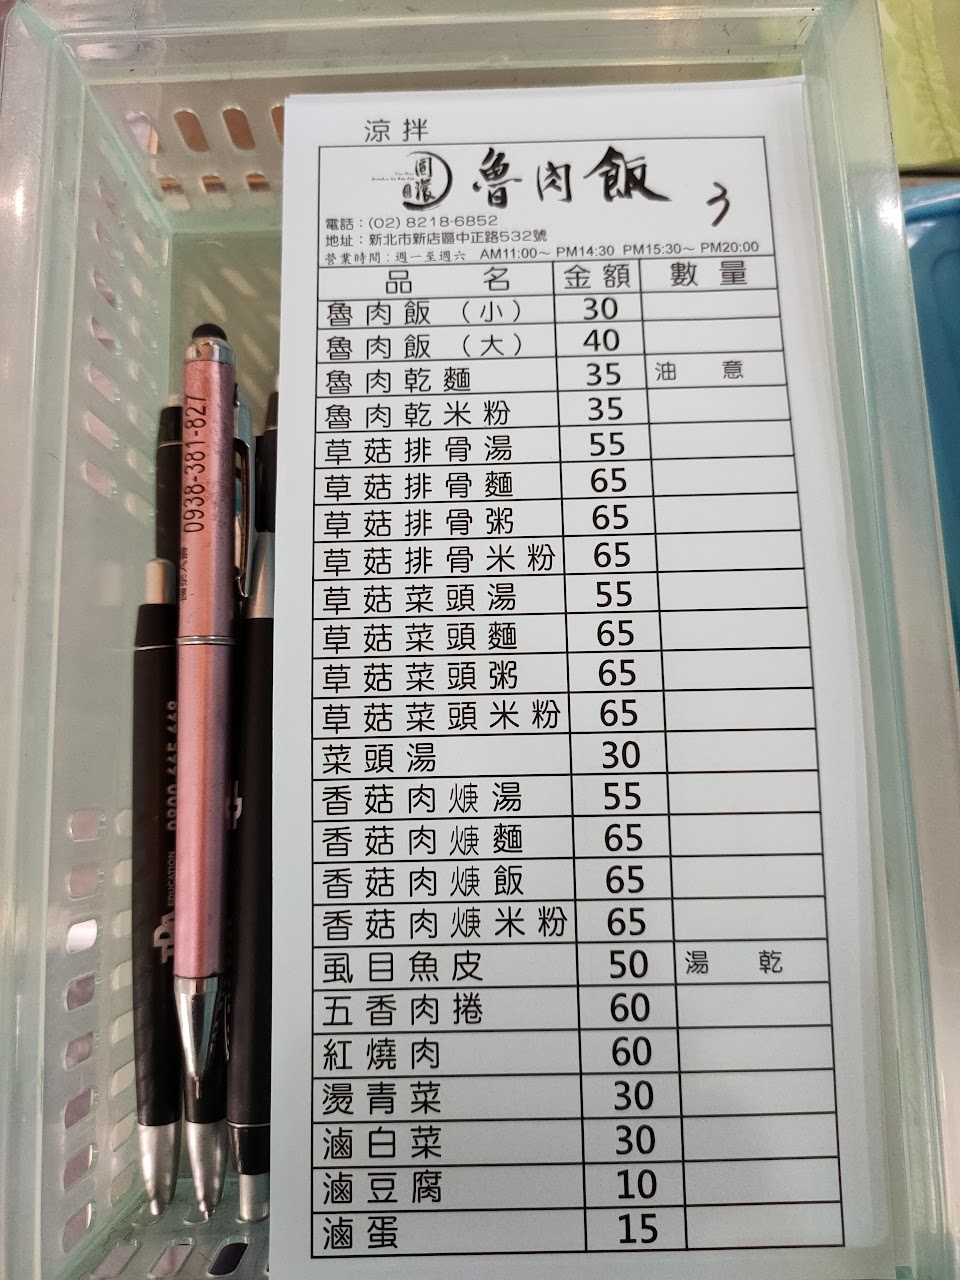 涼拌
圓環 魯肉飯 3
電話：(02) 8218-6852
地址：新北市新店區中正路532號
營業時間：週一至週六 AM11:00～ PM14:30 PM15:30～ PM20:00
品 名 金額 數量
魯肉飯（小） 30
魯肉飯（大） 40
魯肉乾麵 35 油 意
魯肉乾米粉 35
草菇排骨湯 55
草菇排骨麵 65
草菇排骨粥 65
草菇排骨米粉 65
草菇菜頭湯 55
草菇菜頭麵 65
草菇菜頭粥 65
草菇菜頭米粉 65
菜頭湯 30
香菇肉焿湯 55
香菇肉焿麵 65
香菇肉焿飯 65
香菇肉焿米粉 65
虱目魚皮 50 湯 乾
五香肉捲 60
紅燒肉 60
燙青菜 30
滷白菜 30
滷豆腐 10
滷蛋 15
0938-381-827
EDUCATION